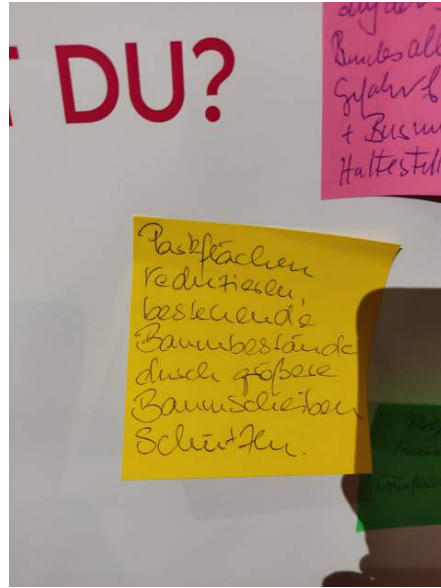 DU?
Bundesall
+ Busun
Haltestell
Parkflächen
reduzieren,
bestehende
Baumbestände
durch größere
Baumscheiben
schützen.